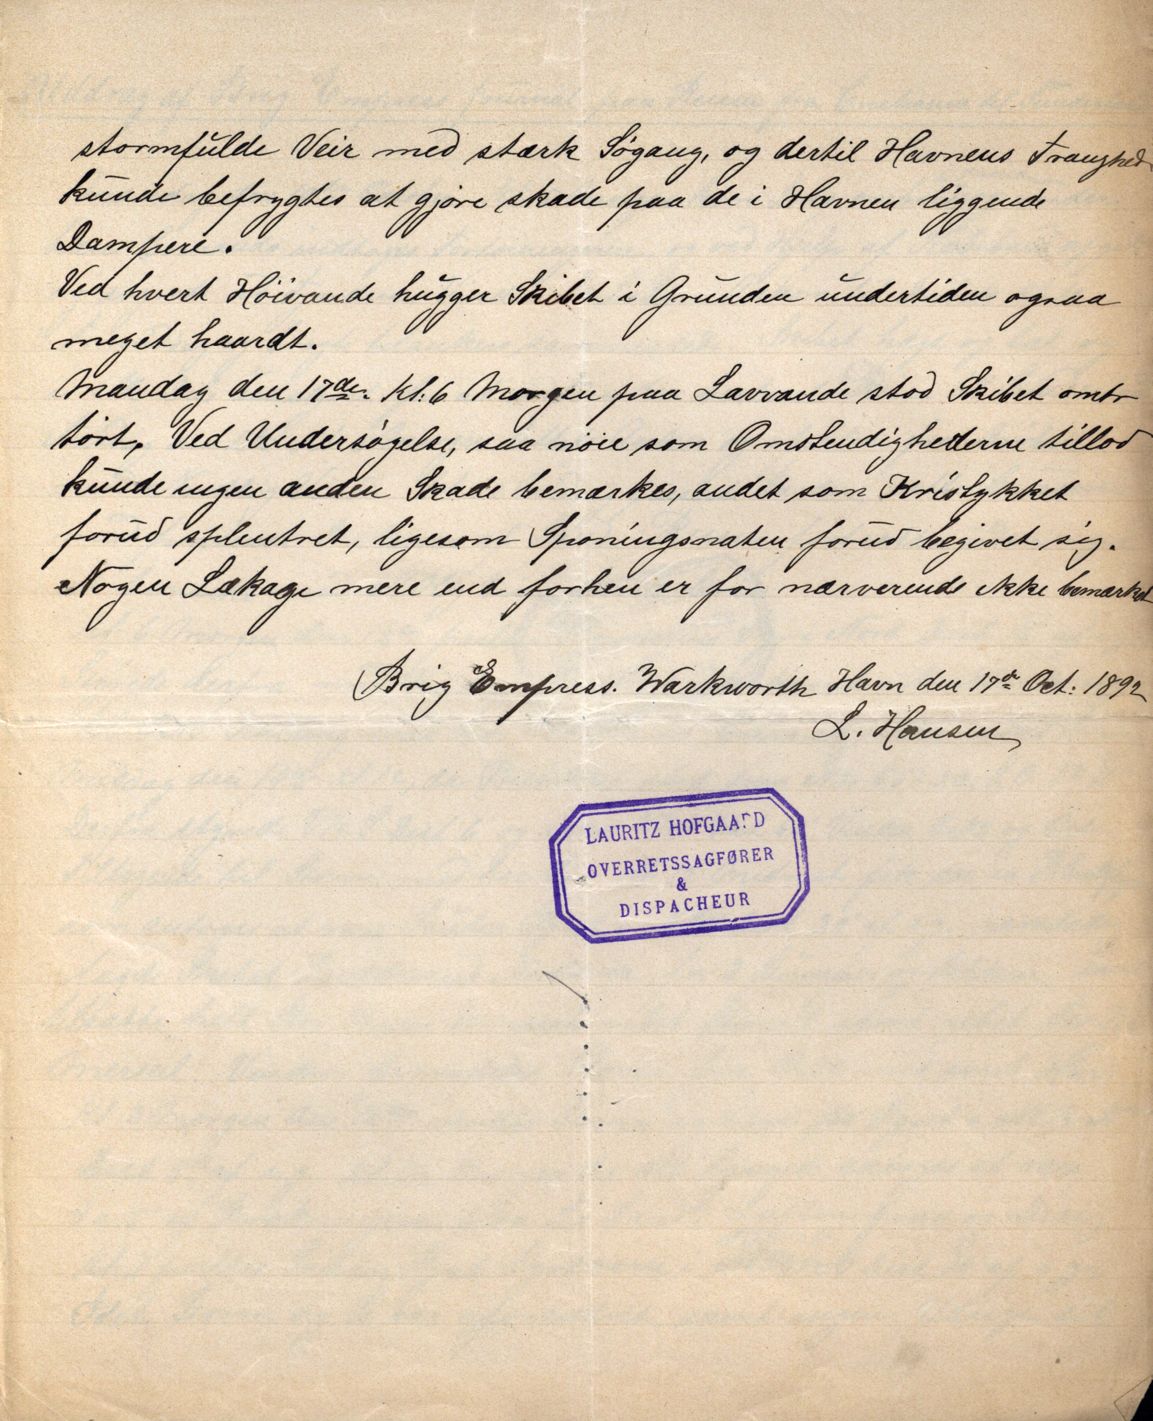 stormfulde Veir med stærk Søgang, og dertil Havnens Tranghed
kunde befrygtes at gjøre skade paa de i Havnen liggende
Dampere.
Ved hvert Höivande hugger Skibet i Grunden undertiden ogsaa
meget haardt.
Mandag den 17de. Kl. 6 Morgen paa Lavvande stod Skibet omtr
tört. Ved Undersøgelse, saa nöie som Omstendighederne tillod
kunde ingen anden Skade bemærkes, andet som Kristykket
forud splentret, ligesom Sponingsnaten forud begivet sig.
Nogen Lækage mere end forhen er for nærverende ikke bemærket
Brig Empress. Warkworth Havn den 17de Oct: 1892
L. Hansen
LAURITZ HOFGAARD
OVERRETSSAGFØRER
&
DISPACHEUR